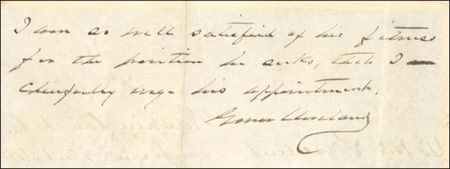 I am so well satisfied of his fitness
for the position he seeks, that I
cheerfully urge his appointment.
Grover Cleveland